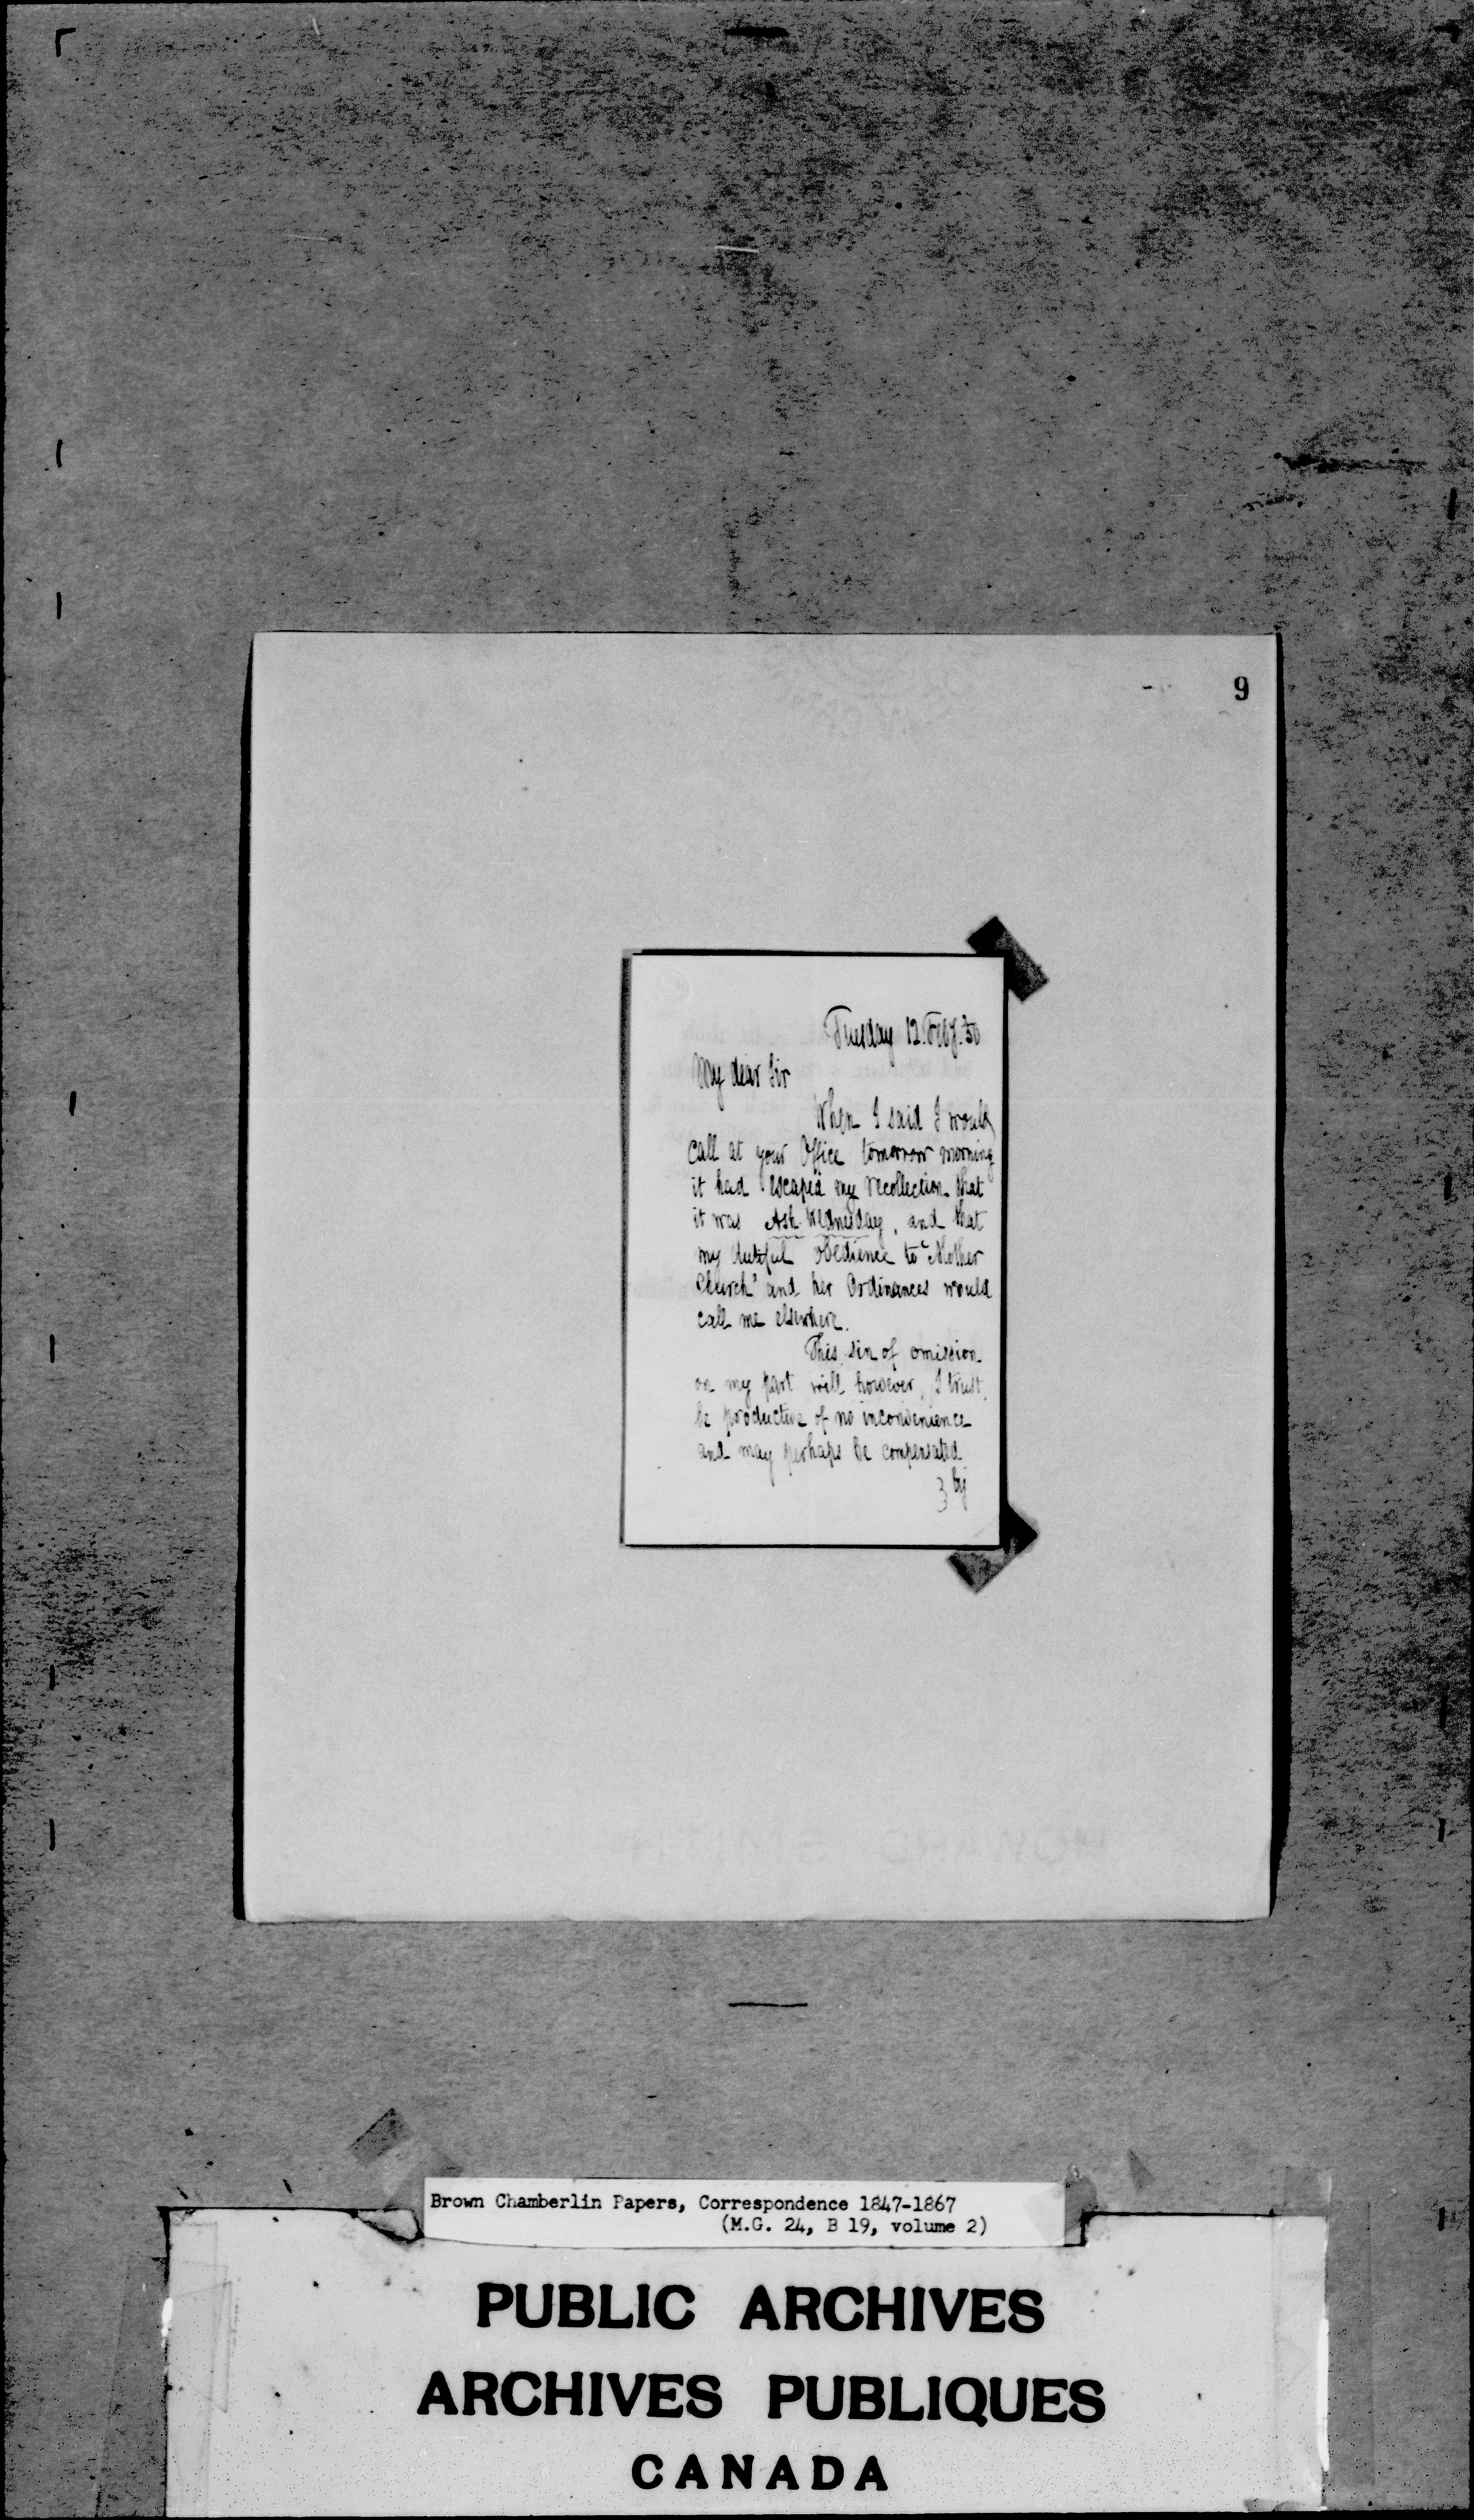 9
Tuesday 12. Feby. 50
My dear Sir
When I said I would
call at your Office tomorrow morning
it had escap'd my recollection that
it was Ash Wednesday, and that
my dutiful obedience to "Mother
Church" and her Ordinances would
call me elsewhere.
This sin of omission
on my part will however, I trust,
be productive of no inconvenience
and may perhaps be compensated
by
Brown Chamberlin Papers, Correspondence 1847-1867
(M.G. 24, B 19, volume 2)
PUBLIC ARCHIVES
ARCHIVES PUBLIQUES
CANADA